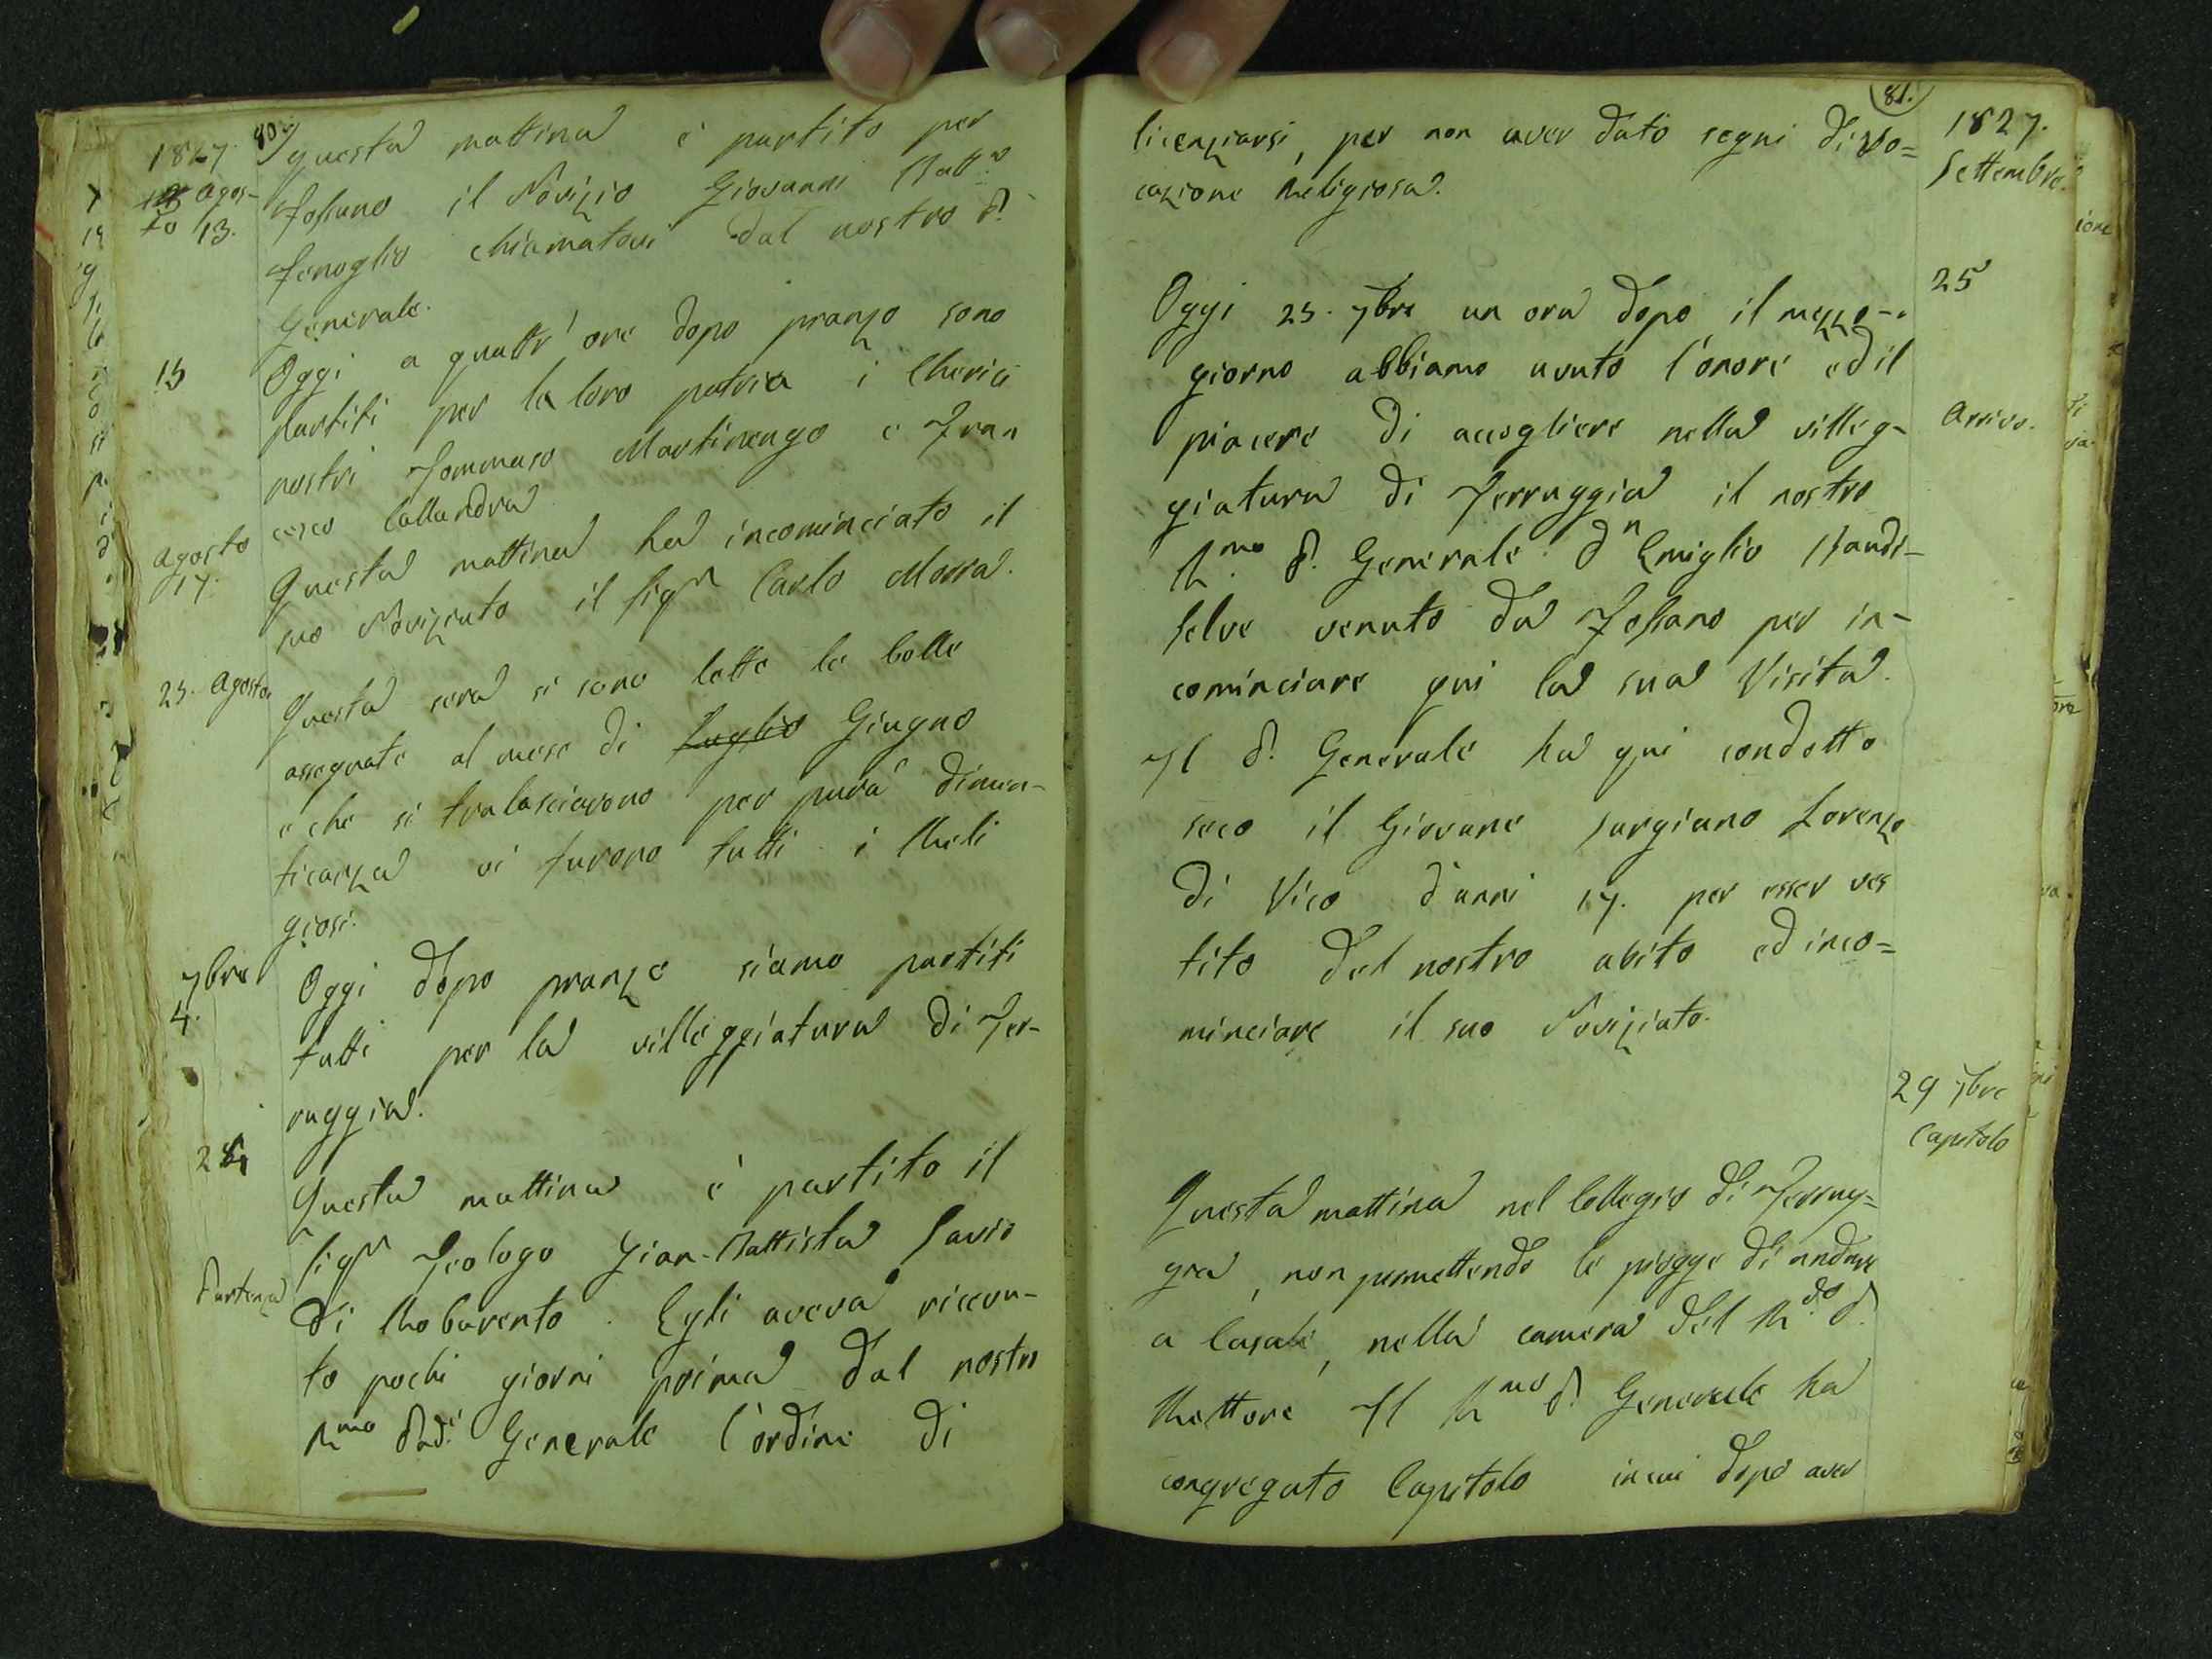 80.
1827.
Agos-
to 13.
Questa mattina è partito per
Fossano il Novizio Giovanni Batta
Fenoglio chiamatovi dal nostro P.
Generale.
15
Oggi a quattr'ore dopo pranzo sono
partiti per la loro patria i Cherici
nostri Tommaso Martinengo e Fran
cesco Callandra
Agosto
17.
Questa mattina ha incominciato il
suo Noviziato il Sigr Carlo Morra.
25. Agosto
Questa sera si sono lette le bolle
assegnate al mese di Luglio Giugno
e che si tralasciarono per pura dimen-
ticanza vi furono tutti i Reli
giosi.
7bre
4.
Oggi dopo pranzo siamo partiti
tutti per la villeggiatura di Ter-
ruggia.
Questa mattina è partito il
Sigr Teologo Gian-Battista Savio
Partenza
di Roburento. Egli aveva ricevu-
to pochi giorni prima dal nostro
Rmo Pad.e Generale l'ordine di
81.
1827.
Settembre.
licenziarsi, per non aver dato segni di vo=
cazione Religiosa.
25
Oggi 25. 7bre un ora dopo il mezzo-
giorno abbiamo avuto l'onore ed il
Arrivo.
piacere di accogliere nella villeg-
giatura di Terruggia il nostro
R.mo P. Generale Dn Emiglio Bandi-
selve venuto da Fossano per in-
cominciare qui la sua Visita.
Il P. Generale ha qui condotto
seco il Giovane Surgiano Lorenzo
di Vico d'anni 17. per esser ves
tito del nostro abito ed inco=
minciare il suo Noviziato.
29 7bre
Capitolo
Questa mattina nel Collegio di Terrug=
gia, non permettendo le piogge di andare
a Casale, nella camera del R.do P.
Rettore Il Rmo P. Generale ha
congregato Capitolo in cui dopo aver